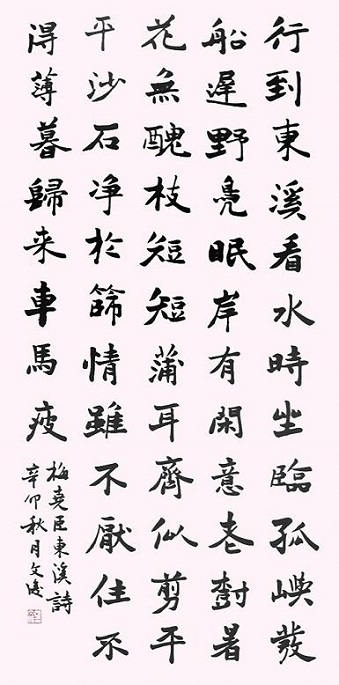 行到東溪看水時坐臨孤嶼發
船遲野鳧眠岸有閑意老樹暑
花無醜枝短短蒲耳齊似剪平
平沙石净於篩情雖不厭住不
得薄暮歸来車馬疲
梅堯臣東溪詩
辛卯秋月文